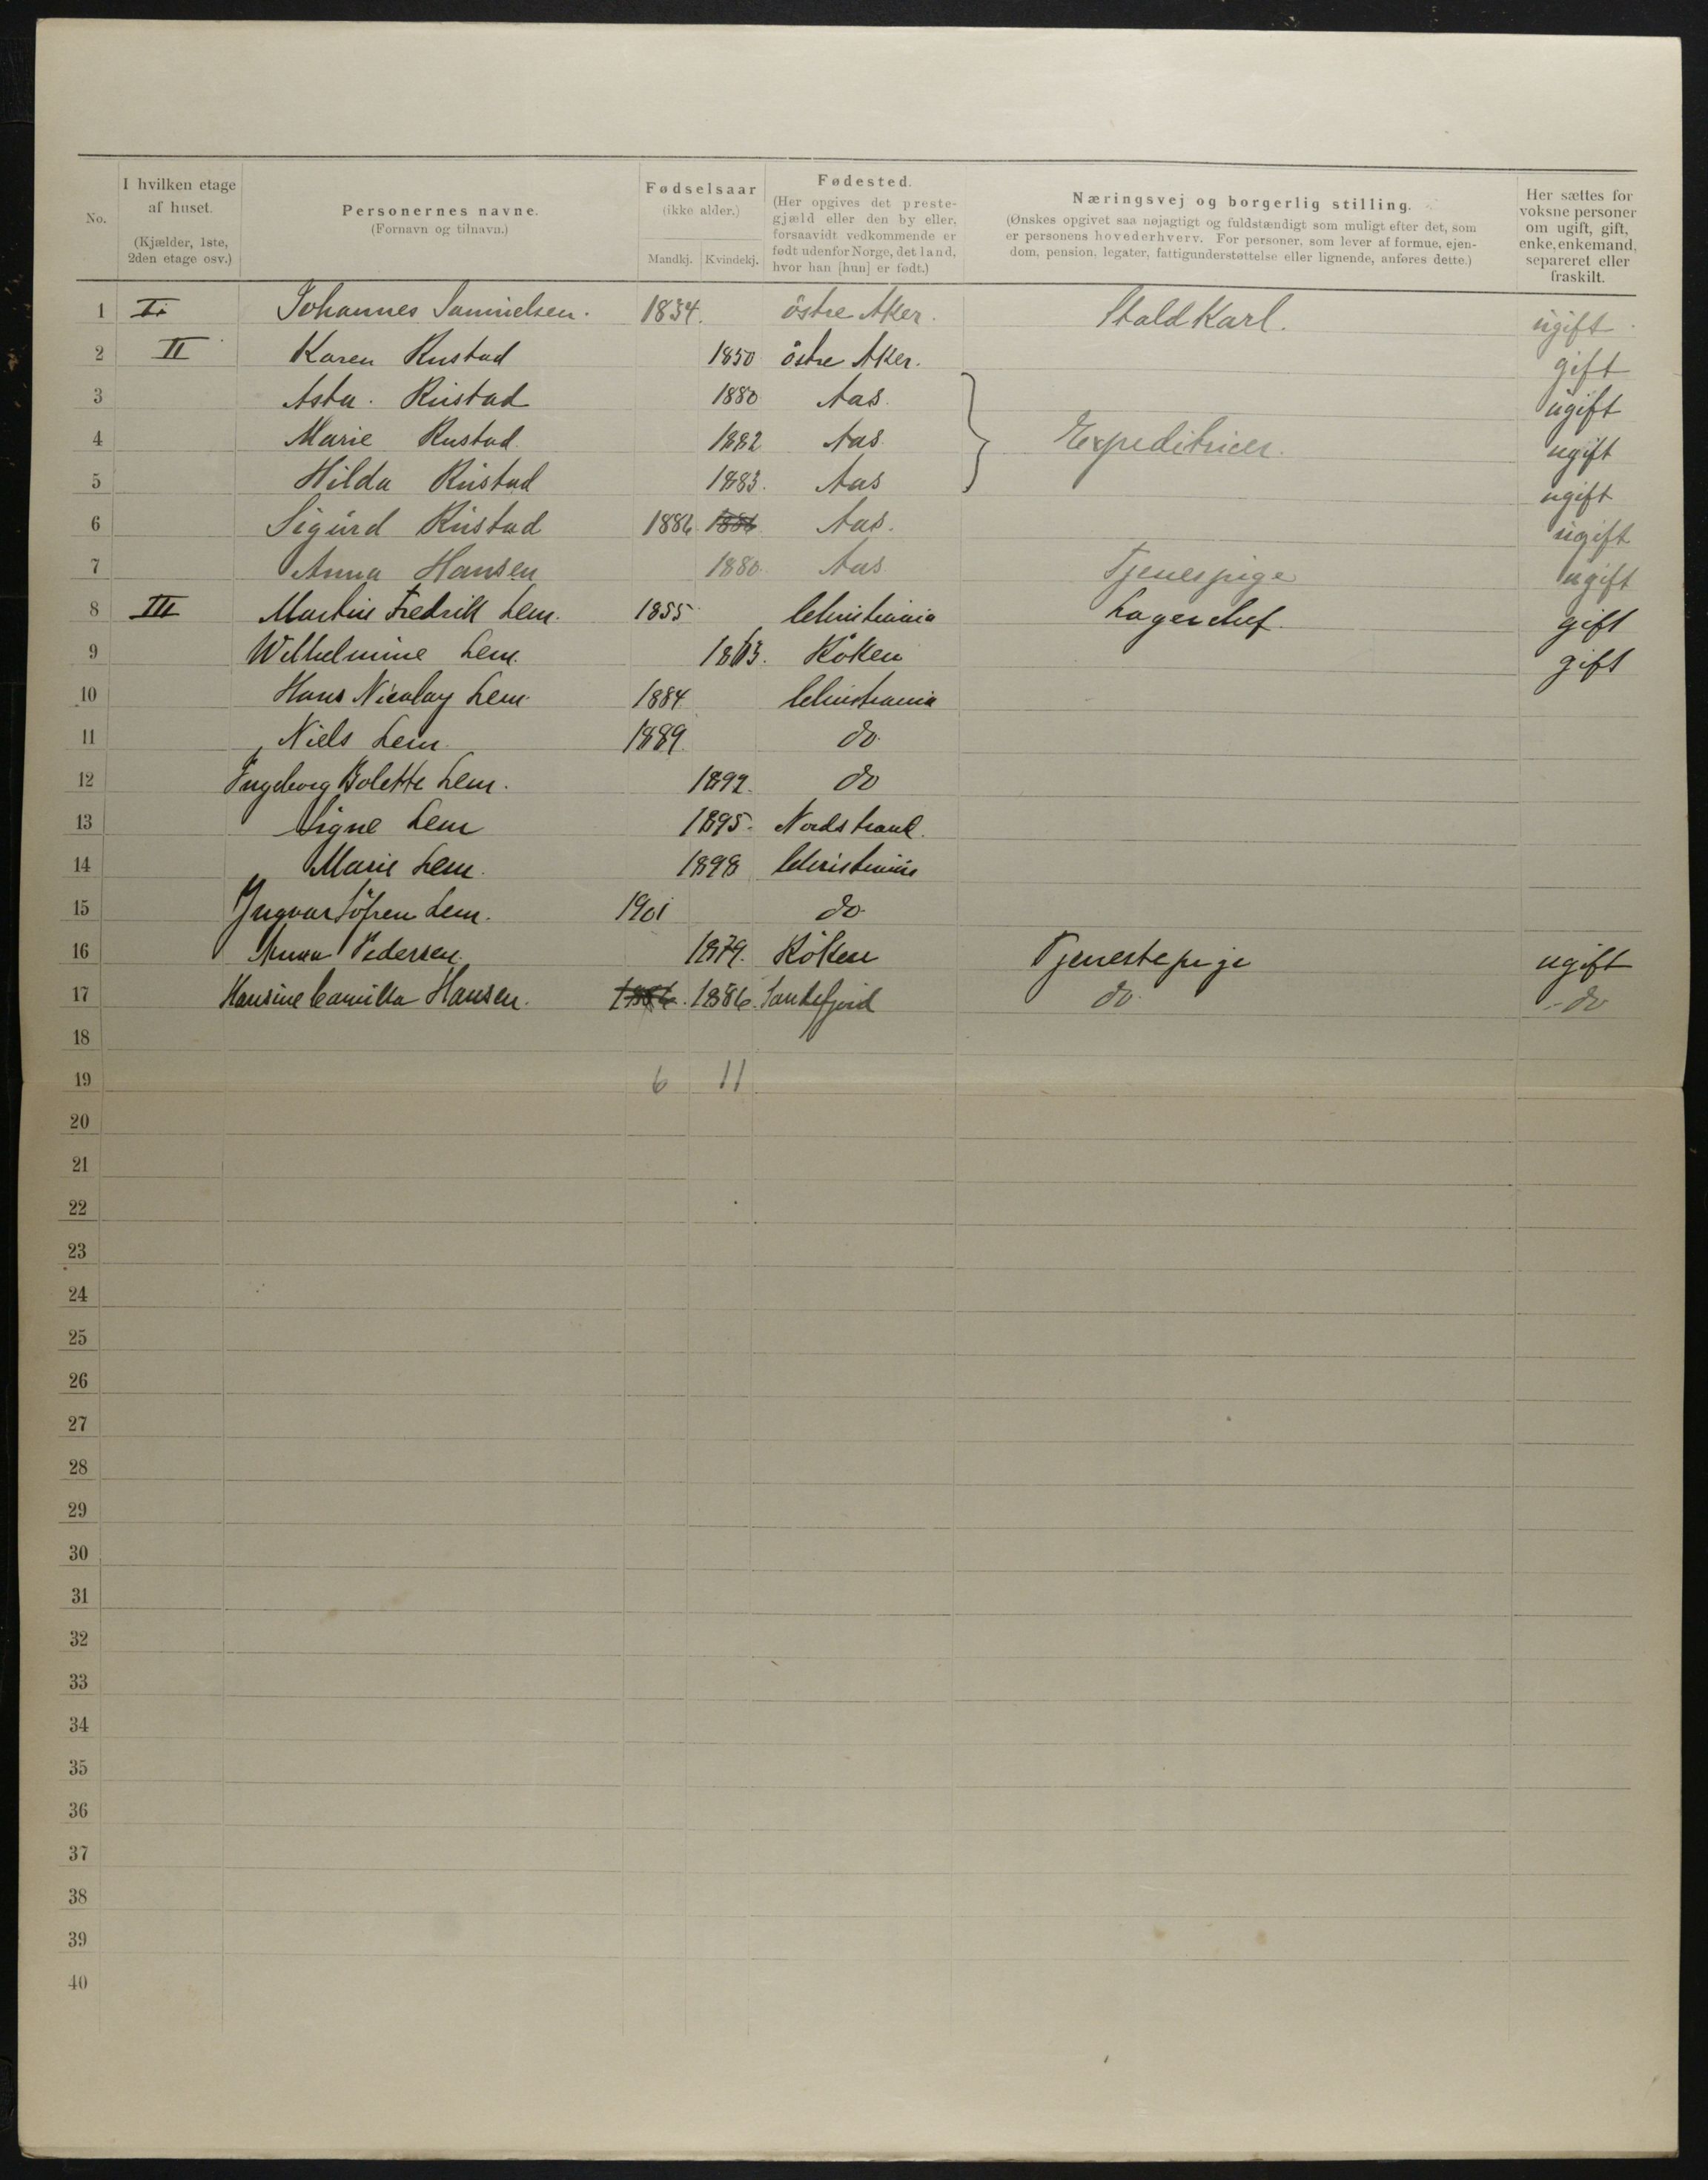 No.
I hvilken etage
af huset.
(Kjælder, 1ste,
2den etage osv.)
Personernes navne.
(Fornavn og tilnavn.)
Fødselsaar
(ikke alder.)
Mandkj. Kvindekj.
Fødested.
(Her opgives det preste-
gjæld eller den by eller,
forsaavidt vedkommende er
født udenfor Norge, det land,
hvor han [hun] er født.)
Næringsvej og borgerlig stilling.
(Ønskes opgivet saa nøjagtigt og fuldstændigt som muligt efter det, som
er personens hovederhverv. For personer, som lever af formue, ejen-
dom, pension, legater, fattigunderstøttelse eller lignende, anføres dette.)
Her sættes for
voksne personer
om ugift, gift,
enke, enkemand,
separeret eller
fraskilt.
1 I. Johannes Samuelsen. 1834. östre Aker. Stald Karl. ugift
2 II Karen Rustad 1850 östre Aker. gift
3 Asta. Rustad 1880 Aas. ugift
4 Marie Rustad 1882 Aas. Expeditricer. ugift
5 Hilda Rustad 1883. Aas ugift
6 Sigurd Rustad 1886 1886 Aas. ugift
7 Anna Hansen 1880. Aas Tjenespige ugift
8 III Martin Fredrik Lem. 1855 Christiania Lagerchef. gift
9 Wilhelmine Lem. 1863. Röken gift
10 Hans Nicolay Lem. 1884 Christiania
11 Niels Lem. 1889. do.
12 Ingeborg Bolette Lem. 1892. do
13 Signe Lem 1895. Nordstrand.
14 Marie Lem. 1898 Christiania
15 Yngvar Lem. 1901 do.
16 Anna Pedersen. 1879. Röken Tjenestepige ugift
17 Hansine Camilla Hansen. 1886. 1886. Sandefjord do. - do
18
19 6 11
20
21
22
23
24
25
26
27
28
29
30
31
32
33
34
35
36
37
38
39
40